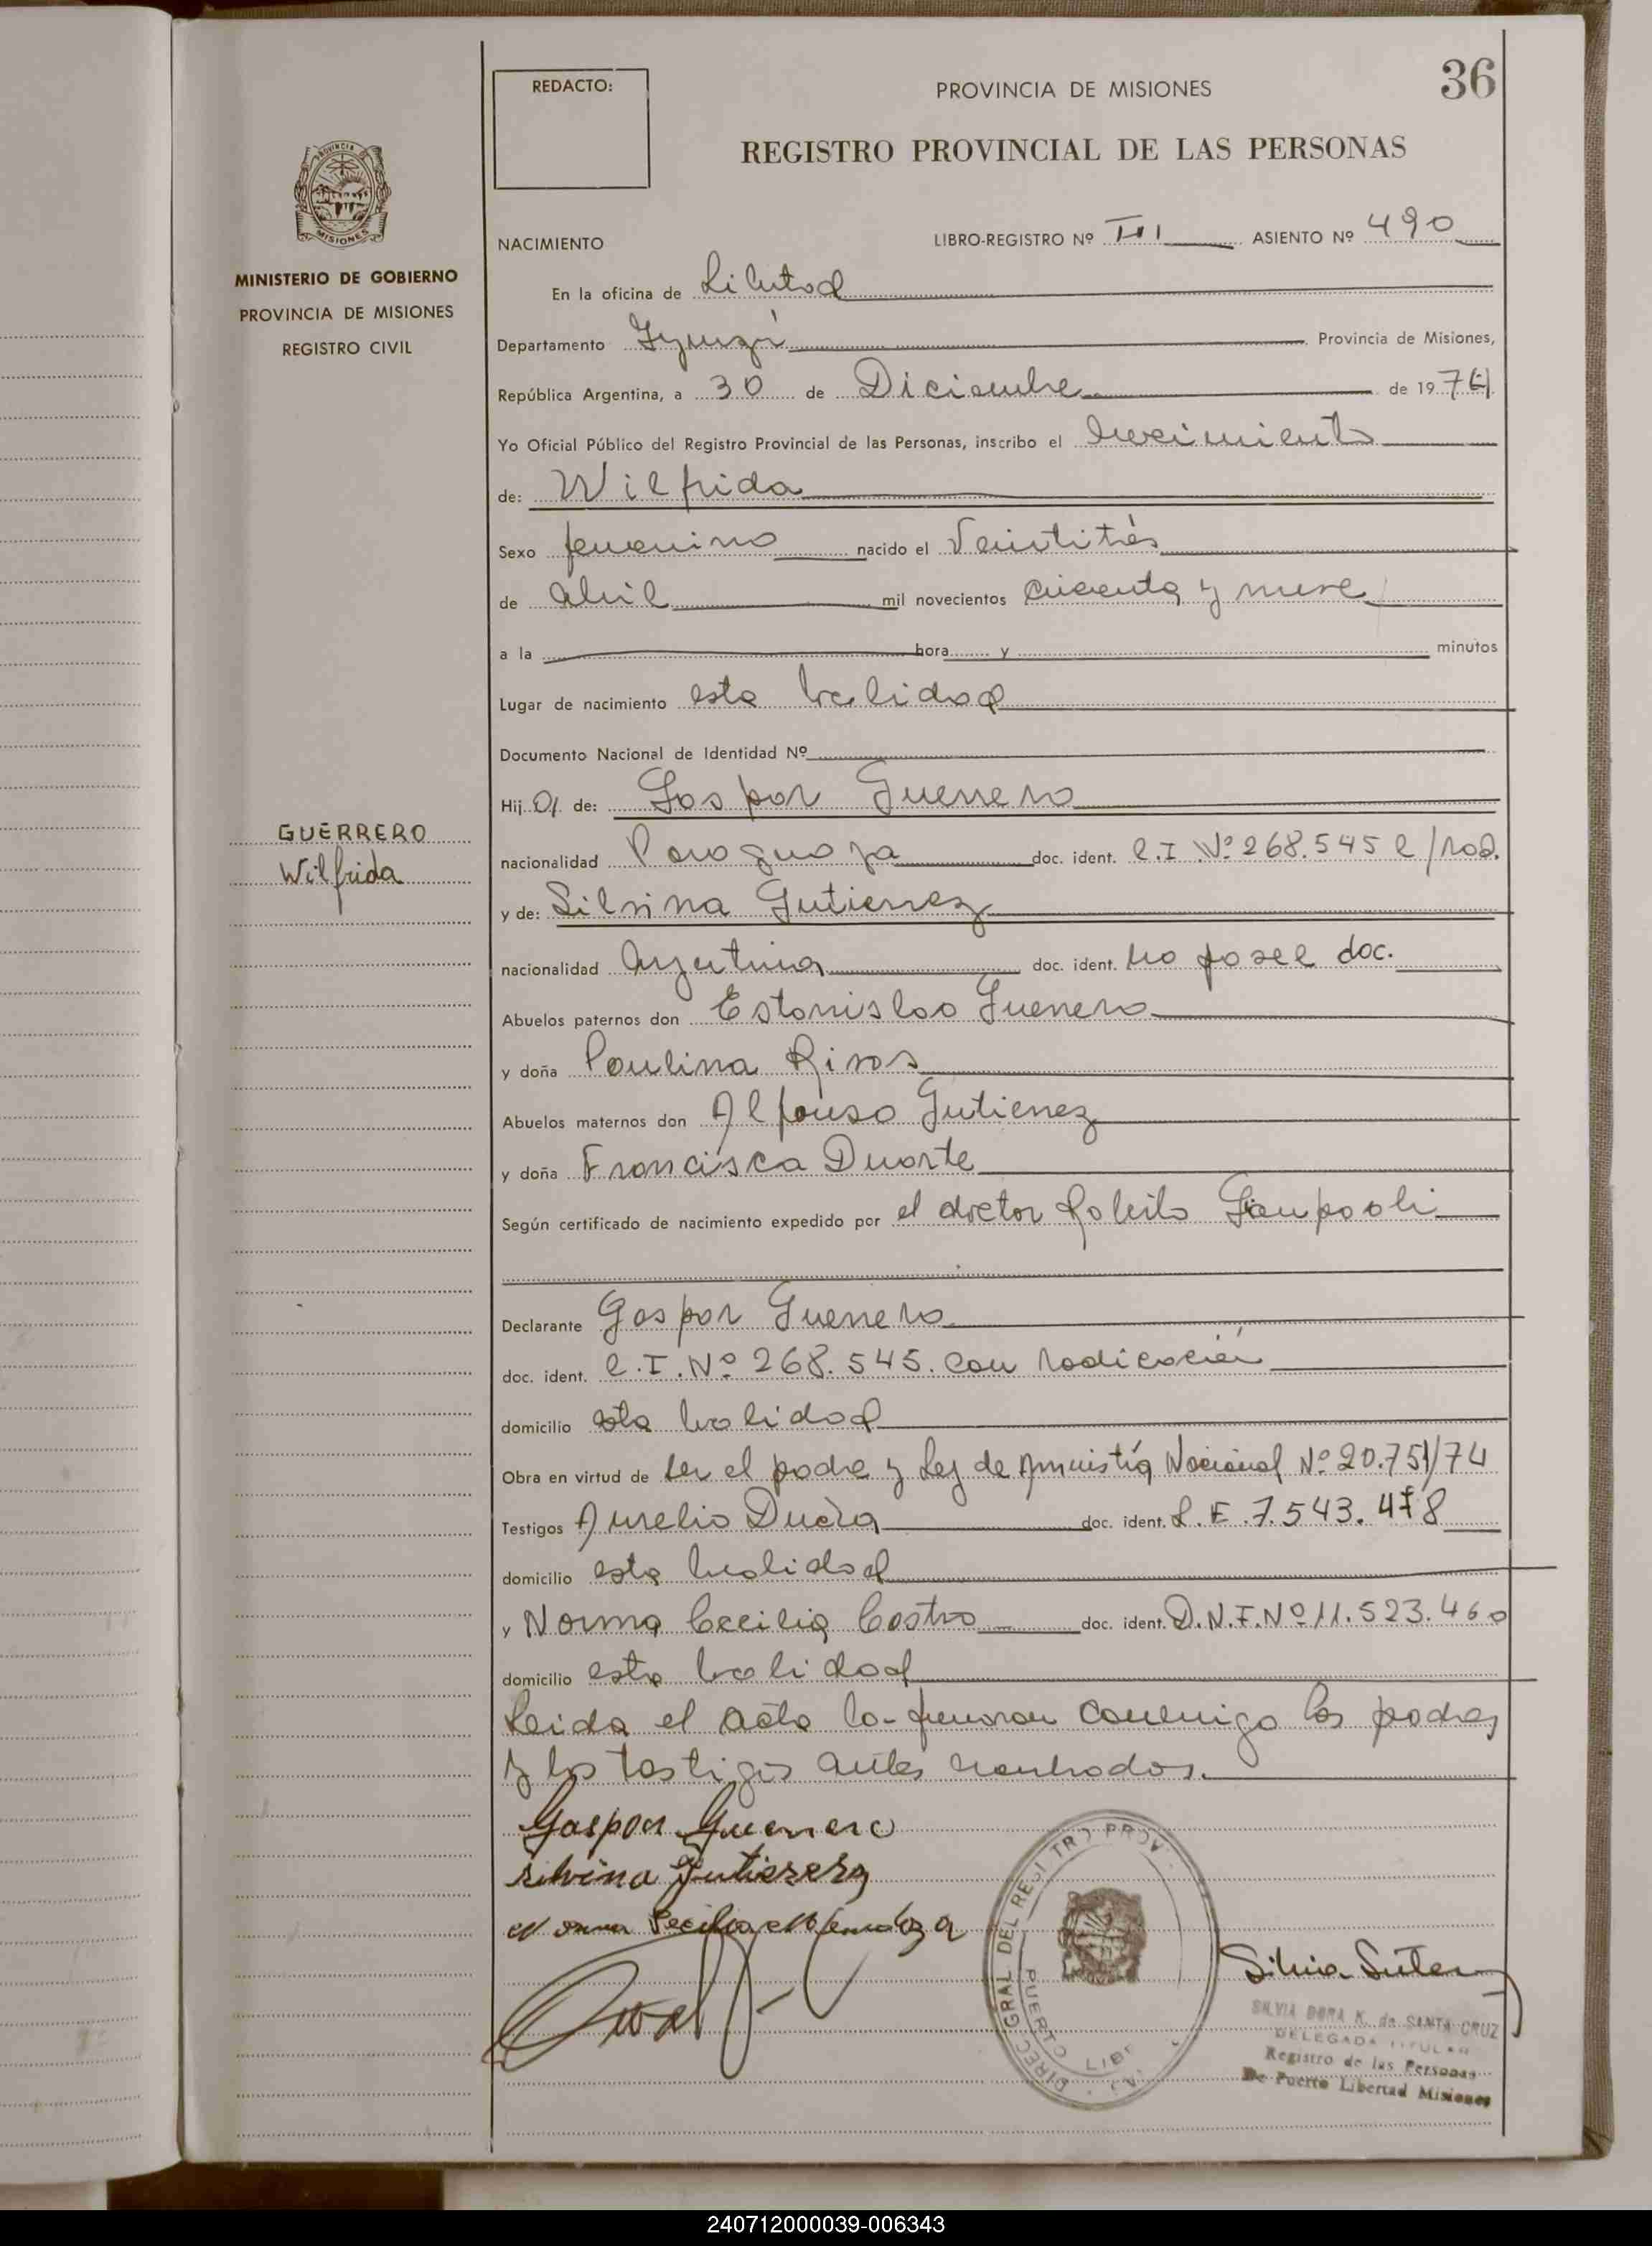 36
REDACTO:
PROVINCIA DE MISIONES
REGISTRO PROVINCIAL DE LAS PERSONAS
PROVINCIA DE
MISIONES
MINISTERIO DE GOBIERNO
PROVINCIA DE MISIONES
REGISTRO CIVIL
NACIMIENTO
LIBRO-REGISTRO Nº III ASIENTO Nº 490
En la oficina de Libertad
Departamento Iguazú Provincia de Misiones,
República Argentina, a 30 de Diciembre de 19 74
Yo Oficial Público del Registro Provincial de las Personas, inscribo el nacimiento
de: Wilfrida
Sexo femenino nacido el Veintitrés
de abril mil novecientos cincuenta y nueve
a la hora y minutos
Lugar de nacimiento esta localidad
Documento Nacional de Identidad Nº
Hij a de: Gaspar Guerrero
GUERRERO
Wilfrida
nacionalidad Paraguaya doc. ident. C.I Nº 268.545 C/rad.
y de: Silvina Gutierrez
nacionalidad Argentina doc. ident. no posee doc.
Abuelos paternos don Estanislao Guerrero
y doña Paulina Rivas
Abuelos maternos don Alfonso Gutierrez
y doña Francisca Duarte
Según certificado de nacimiento expedido por el doctor Roberto Giampaoli
Declarante Gaspar Guerrero
doc. ident. C.I. Nº 268.545. con radicación
domicilio esta localidad
Obra en virtud de ser el padre y Ley de Amnistía Nacional Nº 20.751/74
Testigos Aurelio doc. ident. L.E. 7.543.478
domicilio esta localidad
y Norma Cecilia Castro doc. ident. D.N.I. Nº 11.523.460
domicilio esta localidad
Leida el acta la firmaron conmigo los padres
y los testigos antes nombrados.
Gaspar Guerrero
Silvina Gutierrez
Norma Cecilia
DIREC. GRAL DEL REGISTRO PROV.
PUERTO LIBERTAD
SILVIA DORA K. de SANTA CRUZ
DELEGADA TITULAR
Registro de las Personas
De Puerto Libertad Misiones
240712000039-006343